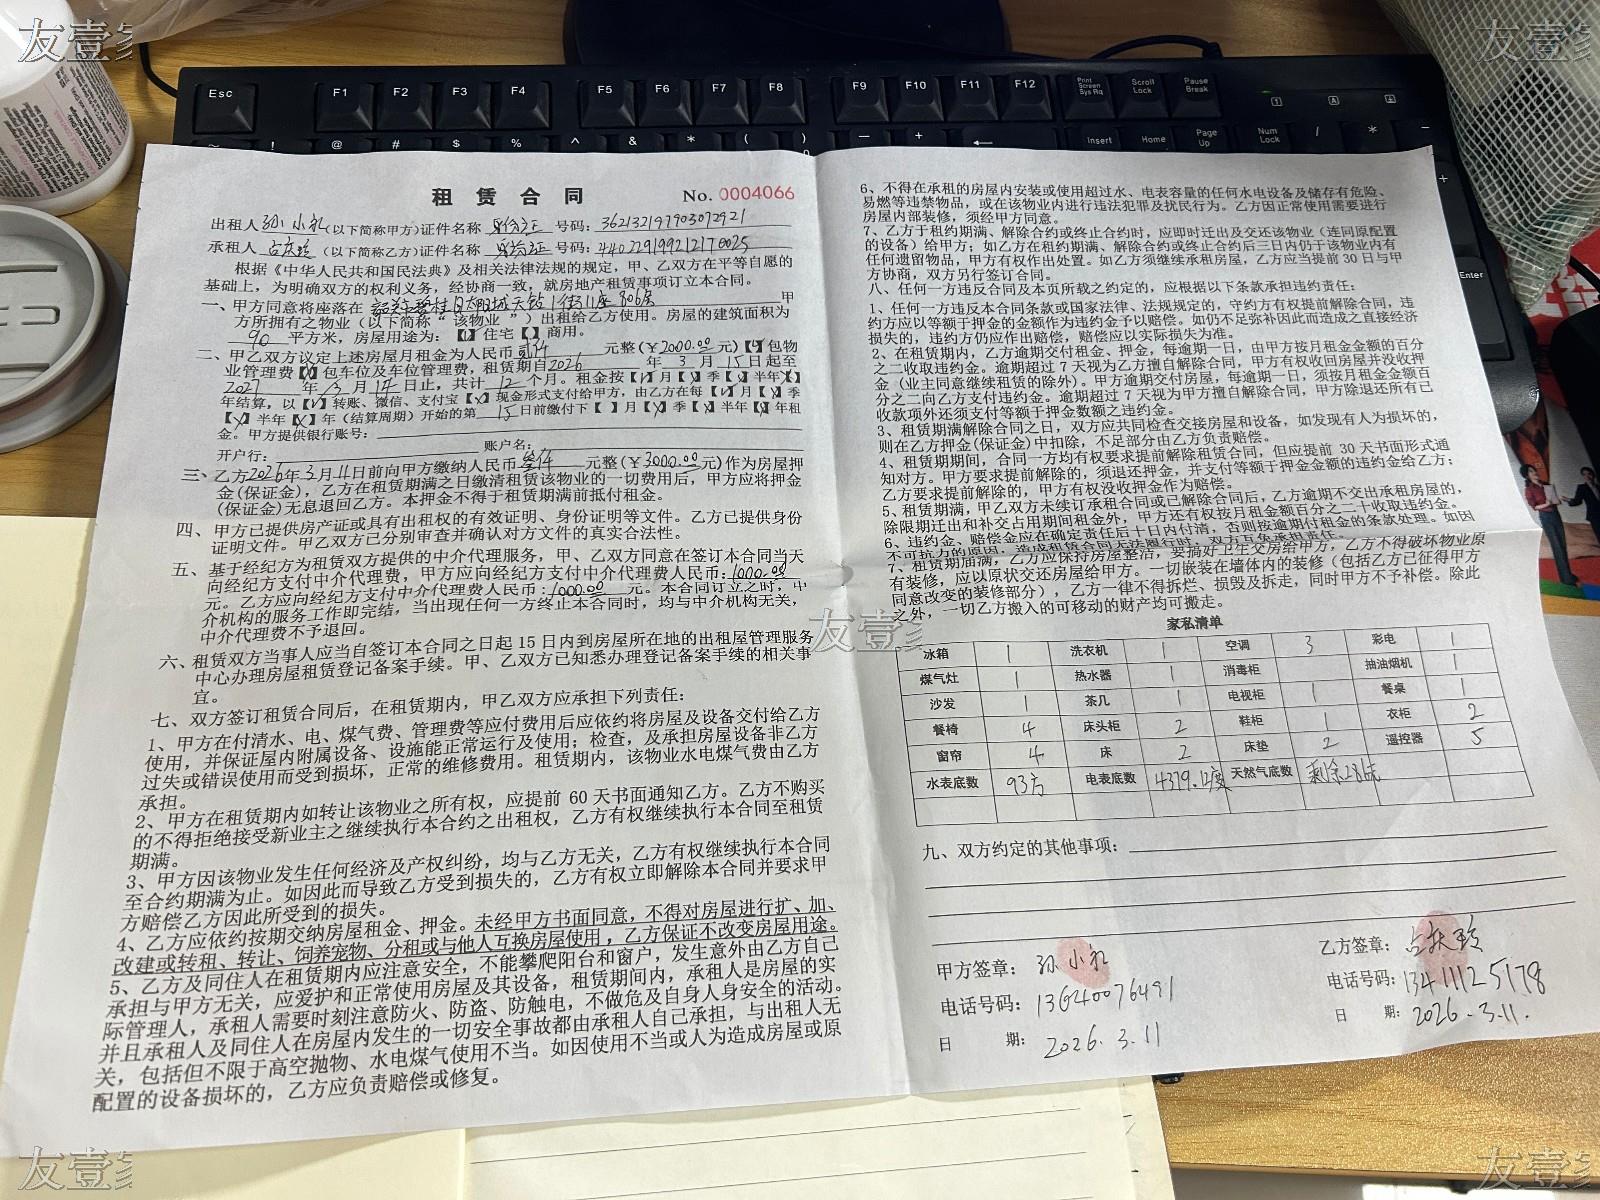 友壹家
友壹家
Esc F1 F2 F3 F4 F5 F6 F7 F8 F9 F10 F11 F12 Print Screen Sys Rq Scroll Lock Pause Break
~ ! @ # $ % ^ & * ( ) — + Insert Home Page Up Num Lock / * −
+
Enter
租赁合同 No. 0004066
出租人 孙小礼(以下简称甲方)证件名称 身份证 号码: 362132197903072921
承租人 (以下简称乙方)证件名称 身份证 号码: 440229199212170025
根据《中华人民共和国民法典》及相关法律法规的规定，甲、乙双方在平等自愿的
基础上，为明确双方的权利义务，经协商一致，就房地产租赁事项订立本合同。
一、甲方同意将座落在 韶关碧桂园太阳城天钻1街11座806房 甲
方所拥有之物业（以下简称“该物业”）出租给乙方使用。房屋的建筑面积为
90 平方米，房屋用途为：【】住宅【】商用。
二、甲乙双方议定上述房屋月租金为人民币 贰仟 元整(￥2000.00元)【】包物
业管理费【】包车位及车位管理费，租赁期自2026 年 3 月 15 日起至
2027 年 3 月 14 日止，共计 12 个月。租金按【√】月【×】季【×】半年【×】
年结算，以【√】转账、微信、支付宝【×】现金形式支付给甲方，由乙方在每【√】月【×】季
【×】半年【×】年（结算周期）开始的第 15 日前缴付下【 】月【×】季【×】半年【×】年租
金。甲方提供银行账号：
开户行： 账户名：
三、乙方2026年3月11日前向甲方缴纳人民币 叁仟 元整(￥3000.00元)作为房屋押
金(保证金)，乙方在租赁期满之日缴清租赁该物业的一切费用后，甲方应将押金
(保证金)无息退回乙方。本押金不得于租赁期满前抵付租金。
四、甲方已提供房产证或具有出租权的有效证明、身份证明等文件。乙方已提供身份
证明文件。甲乙双方已分别审查并确认对方文件的真实合法性。
五、基于经纪方为租赁双方提供的中介代理服务，甲、乙双方同意在签订本合同当天
向经纪方支付中介代理费，甲方应向经纪方支付中介代理费人民币：1000.00
元。乙方应向经纪方支付中介代理费人民币：1000.00 元。本合同订立之时，中
介机构的服务工作即完结，当出现任何一方终止本合同时，均与中介机构无关，
中介代理费不予退回。
六、租赁双方当事人应当自签订本合同之日起 15 日内到房屋所在地的出租屋管理服务
中心办理房屋租赁登记备案手续。甲、乙双方已知悉办理登记备案手续的相关事
宜。
七、双方签订租赁合同后，在租赁期内，甲乙双方应承担下列责任：
1、甲方在付清水、电、煤气费、管理费等应付费用后应依约将房屋及设备交付给乙方
使用，并保证屋内附属设备、设施能正常运行及使用；检查，及承担房屋设备非乙方
过失或错误使用而受到损坏，正常的维修费用。租赁期内，该物业水电煤气费由乙方
承担。
2、甲方在租赁期内如转让该物业之所有权，应提前 60 天书面通知乙方。乙方不购买
的不得拒绝接受新业主之继续执行本合约之出租权，乙方有权继续执行本合同至租赁
期满。
3、甲方因该物业发生任何经济及产权纠纷，均与乙方无关，乙方有权继续执行本合同
至合约期满为止。如因此而导致乙方受到损失的，乙方有权立即解除本合同并要求甲
方赔偿乙方因此所受到的损失。
4、乙方应依约按期交纳房屋租金、押金。未经甲方书面同意，不得对房屋进行扩、加、
改建或转租、转让、饲养宠物、分租或与他人互换房屋使用，乙方保证不改变房屋用途。
5、乙方及同住人在租赁期内应注意安全，不能攀爬阳台和窗户，发生意外由乙方自己
承担与甲方无关，应爱护和正常使用房屋及其设备，租赁期间内，承租人是房屋的实
际管理人，承租人需要时刻注意防火、防盗、防触电，不做危及自身人身安全的活动。
并且承租人及同住人在房屋内发生的一切安全事故都由承租人自己承担，与出租人无
关，包括但不限于高空抛物、水电煤气使用不当。如因使用不当或人为造成房屋或原
配置的设备损坏的，乙方应负责赔偿或修复。
6、不得在承租的房屋内安装或使用超过水、电表容量的任何水电设备及储存有危险、
易燃等违禁物品，或在该物业内进行违法犯罪及扰民行为。乙方因正常使用需要进行
房屋内部装修，须经甲方同意。
7、乙方于租约期满、解除合约或终止合约时，应即时迁出及交还该物业（连同原配置
的设备）给甲方；如乙方在租约期满、解除合约或终止合约后三日内仍于该物业内有
任何遗留物品，甲方有权作出处置。如乙方须继续承租房屋，乙方应当提前 30 日与甲
方协商，双方另行签订合同。
八、任何一方违反合同及本页所载之约定的，应根据以下条款承担违约责任：
1、任何一方违反本合同条款或国家法律、法规规定的，守约方有权提前解除合同，违
约方应以等额于押金的金额作为违约金予以赔偿。如仍不足弥补因此而造成之直接经济
损失的，违约方仍应作出赔偿，赔偿应以实际损失为准。
2、在租赁期内，乙方逾期交付租金、押金，每逾期一日，由甲方按月租金金额的百分
之二收取违约金。逾期超过 7 天视为乙方擅自解除合同，甲方有权收回房屋并没收押
金（业主同意继续租赁的除外）。甲方逾期交付房屋，每逾期一日，须按月租金金额百
分之二向乙方支付违约金。逾期超过 7 天视为甲方擅自解除合同，甲方除退还所有已
收款项外还须支付等额于押金数额之违约金。
3、租赁期满解除合同之日，双方应共同检查交接房屋和设备，如发现有人为损坏的，
则在乙方押金(保证金)中扣除，不足部分由乙方负责赔偿。
4、租赁期期间，合同一方均有权要求提前解除租赁合同，但应提前 30 天书面形式通
知对方。甲方要求提前解除的，须退还押金，并支付等额于押金金额的违约金给乙方；
乙方要求提前解除的，甲方有权没收押金作为赔偿。
5、租赁期满，甲乙双方未续订承租合同或已解除合同后，乙方逾期不交出承租房屋的，
除限期迁出和补交占用期间租金外，甲方还有权按月租金额百分之二十收取违约金。
6、违约金、赔偿金应在确定责任后十日内付清，否则按逾期付租金的条款处理。如因
不可抗力的原因，造成租赁合同无法履行时，双方互免承担责任。
7、租赁期届满，乙方应保持房屋整洁，要搞好卫生交房给甲方，乙方不得破坏物业原
有装修，应以原状交还房屋给甲方。一切嵌装在墙体内的装修（包括乙方已征得甲方
同意改变的装修部分），乙方一律不得拆烂、损毁及拆走，同时甲方不予补偿。除此
之外，一切乙方搬入的可移动的财产均可搬走。
友壹家
家私清单
冰箱 1 洗衣机 1 空调 3 彩电 1
煤气灶 1 热水器 1 消毒柜 抽油烟机 1
沙发 1 茶几 1 电视柜 1 餐桌 1
餐椅 4 床头柜 2 鞋柜 1 衣柜 2
窗帘 4 床 2 床垫 2 遥控器 5
水表底数 93方 电表底数 4379.12度 天然气底数 剩余28
九、双方约定的其他事项：
甲方签章： 孙小礼
电话号码： 13640076491
日 期： 2026.3.11
乙方签章：
电话号码： 13411125178
日 期： 2026.3.11.
友壹家
友壹家